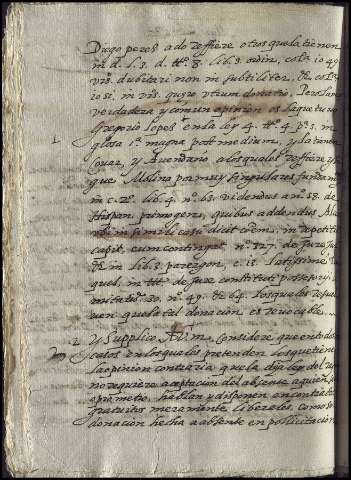 Diego perez a do reffiere otros que la tienen
in d. l. 3. d. tt.º 8. lib. 3. ordin, colª 10 49.
vrs. dubitari non in subtiliter. & colª
10 51, in vrs. quero utrum donatio, Pero la mas
verdadera y comun opinion es la que tuvo
Gregorio lopes en la ley 4. tt.º 4. pª 5. in
glosa 1ª magna post medium, y la tienen
Covar, y Avendario a los quales reffiere y si-
gue Molina por muy singulares fundamᵗ
in c. 2. lib. 4. nº 63. videndus a nº 58. de
Hispan. primogens, quibus addendus Alva
in simili casu dicit codem, in repetit.
capit. cum contingat nº 127. de jure jur
& in lib. 3. parergon, c. 12. latissime,
quel, in tit. de jure constituti possessorij,
mitatio. 30. nº 49. & 64. los quales resuel
uen que la tal donacion es revocable
2. Y Supplico A Vm. considere que en todos
casos en los quales pretenden los que tienen
la opinion contraria que la dija ley del rey
no requiere aceptacion del absente a quien se
prometio. hablan y disponen en contratos
gratuitos meramente liberales, como es
donacion hecha a absente en pollicitacion